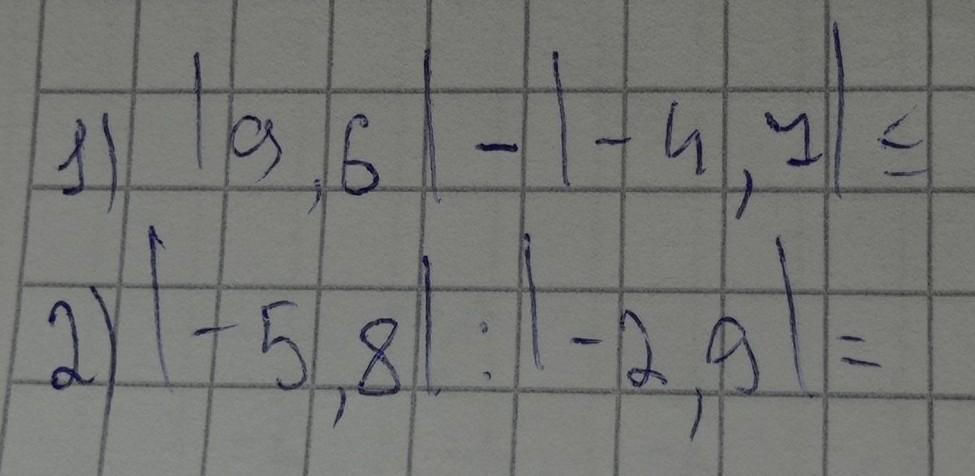 1) |9,6| - |-4,7| =
2) |-5,8| : |-2,9| =